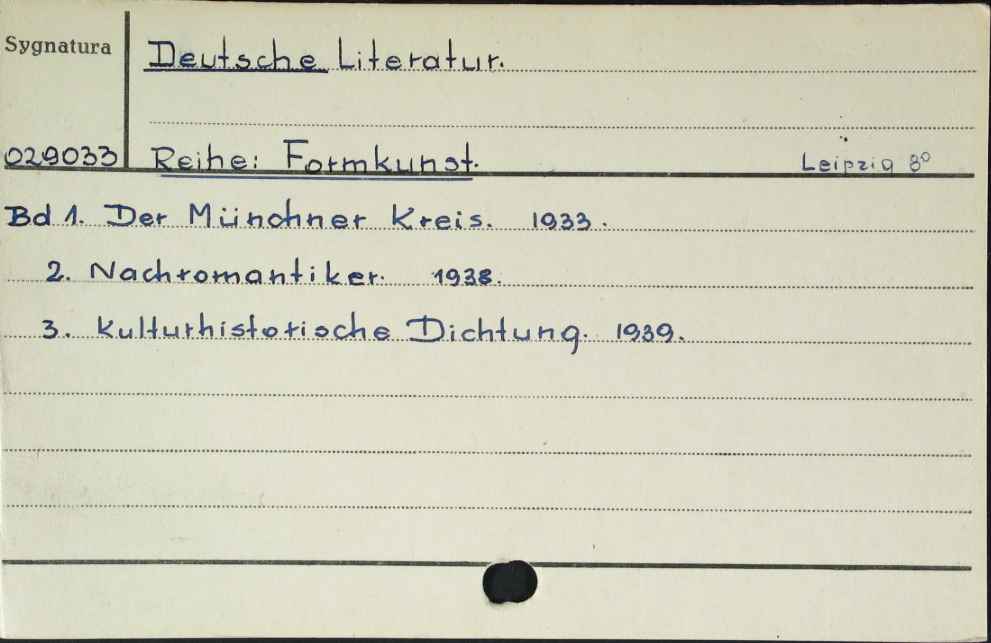 Sygnatura
Deutsche Literatur.
029033 Reihe: Formkunst. Leipzig 8°
Bd 1. Der Münchner Kreis. 1933.
2. Nachromantiker. 1938.
3. Kulturhistorische Dichtung. 1939.